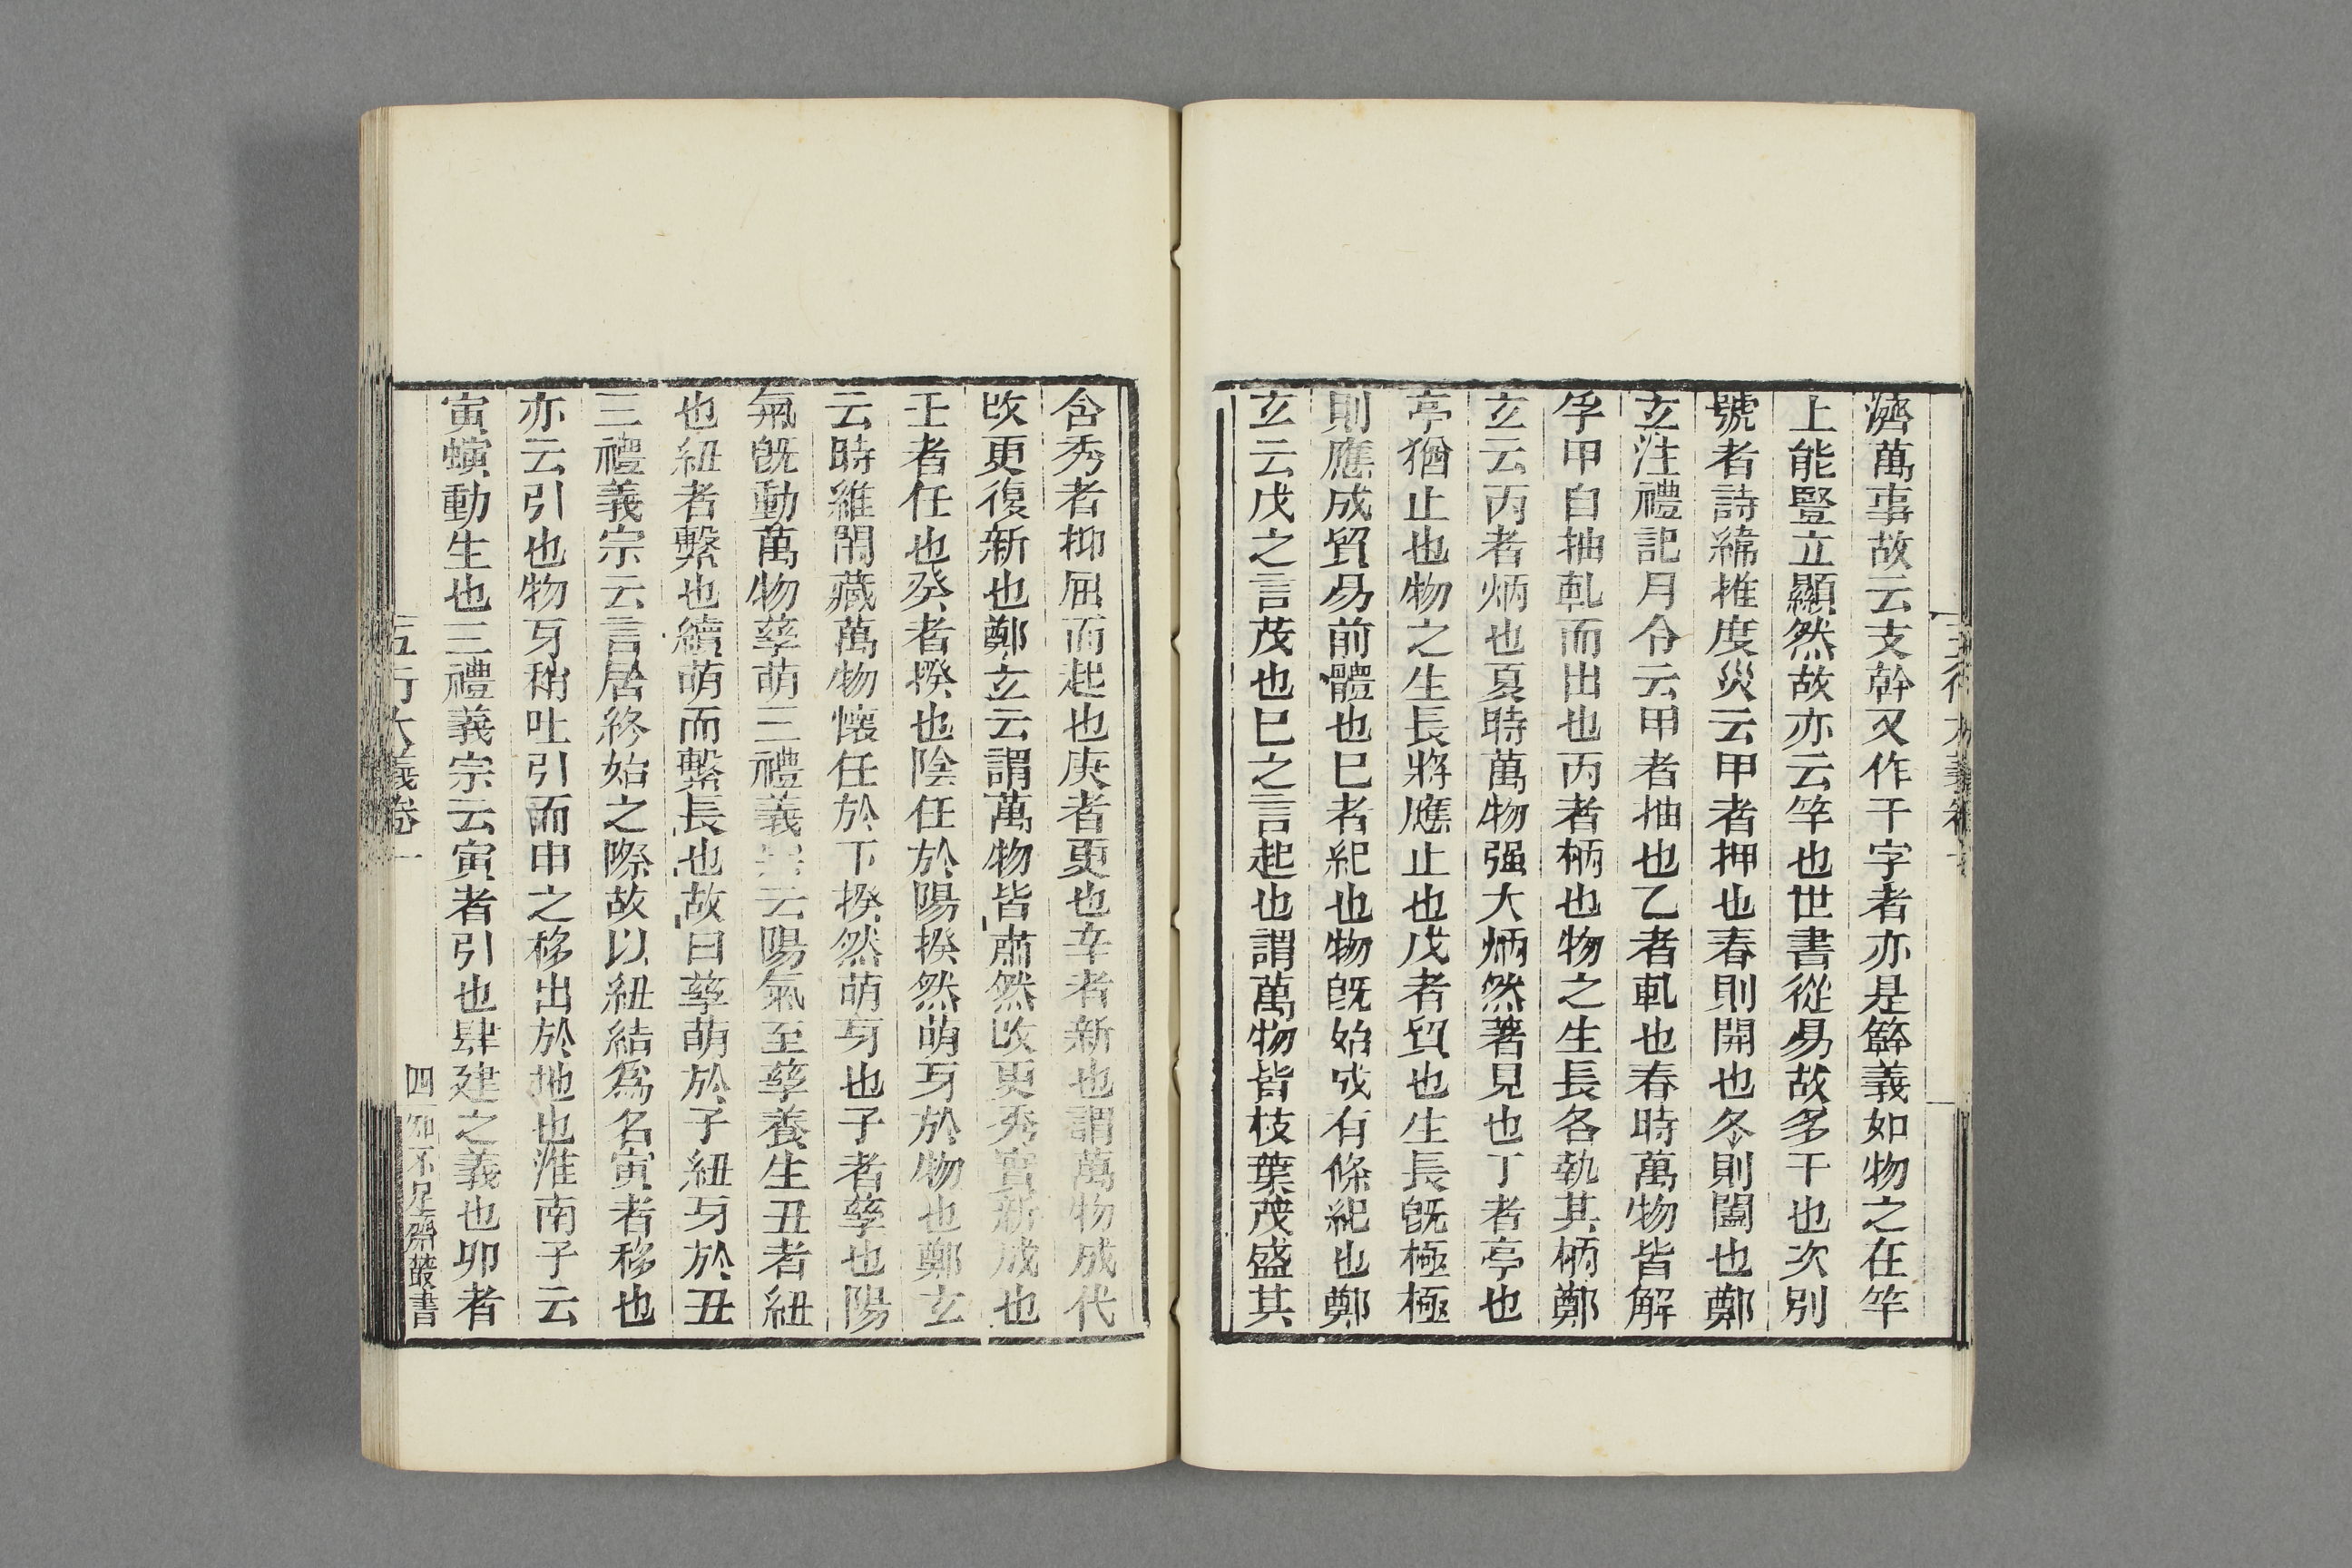 濟萬事故云支幹又作干字者亦是簳義如物之在竿
上能豎立顯然故亦云竿也世書從易故多干也次別
號者詩緯推度災云甲者押也春則開也冬則闔也鄭
玄注禮記月令云甲者抽也乙者軋也春時萬物皆解
孚甲自抽軋而出也丙者柄也物之生長各執其柄鄭
玄云丙者炳也夏時萬物强大炳然著見也丁者亭也
亭猶止也物之生長將應止也戊者貿也生長既極極
則應成貿易前體也巳者紀也物既始成有條紀也鄭
玄云戊之言茂也巳之言起也謂萬物皆枝葉茂盛其
含秀者抑屈而起也庚者更也辛者新也謂萬物成代
改更復新也鄭玄云謂萬物皆肅然改更秀實新成也
壬者任也癸者揆也陰任於陽揆然萌芽於物也鄭玄
云時維閉藏萬物懷任於下揆然萌芽也子者孳也陽
氣既動萬物孳萌三禮義宗云陽氣至孳養生丑者紐
也紐者繫也續萌而繫長也故曰孳萌於子紐芽於丑
三禮義宗云言居終始之際故以紐結爲名寅者移也
亦云引也物芽稍吐引而申之移出於地也淮南子云
寅螾動生也三禮義宗云寅者引也肆建之義也卯者
五行大義卷一
四
知不足齋叢書